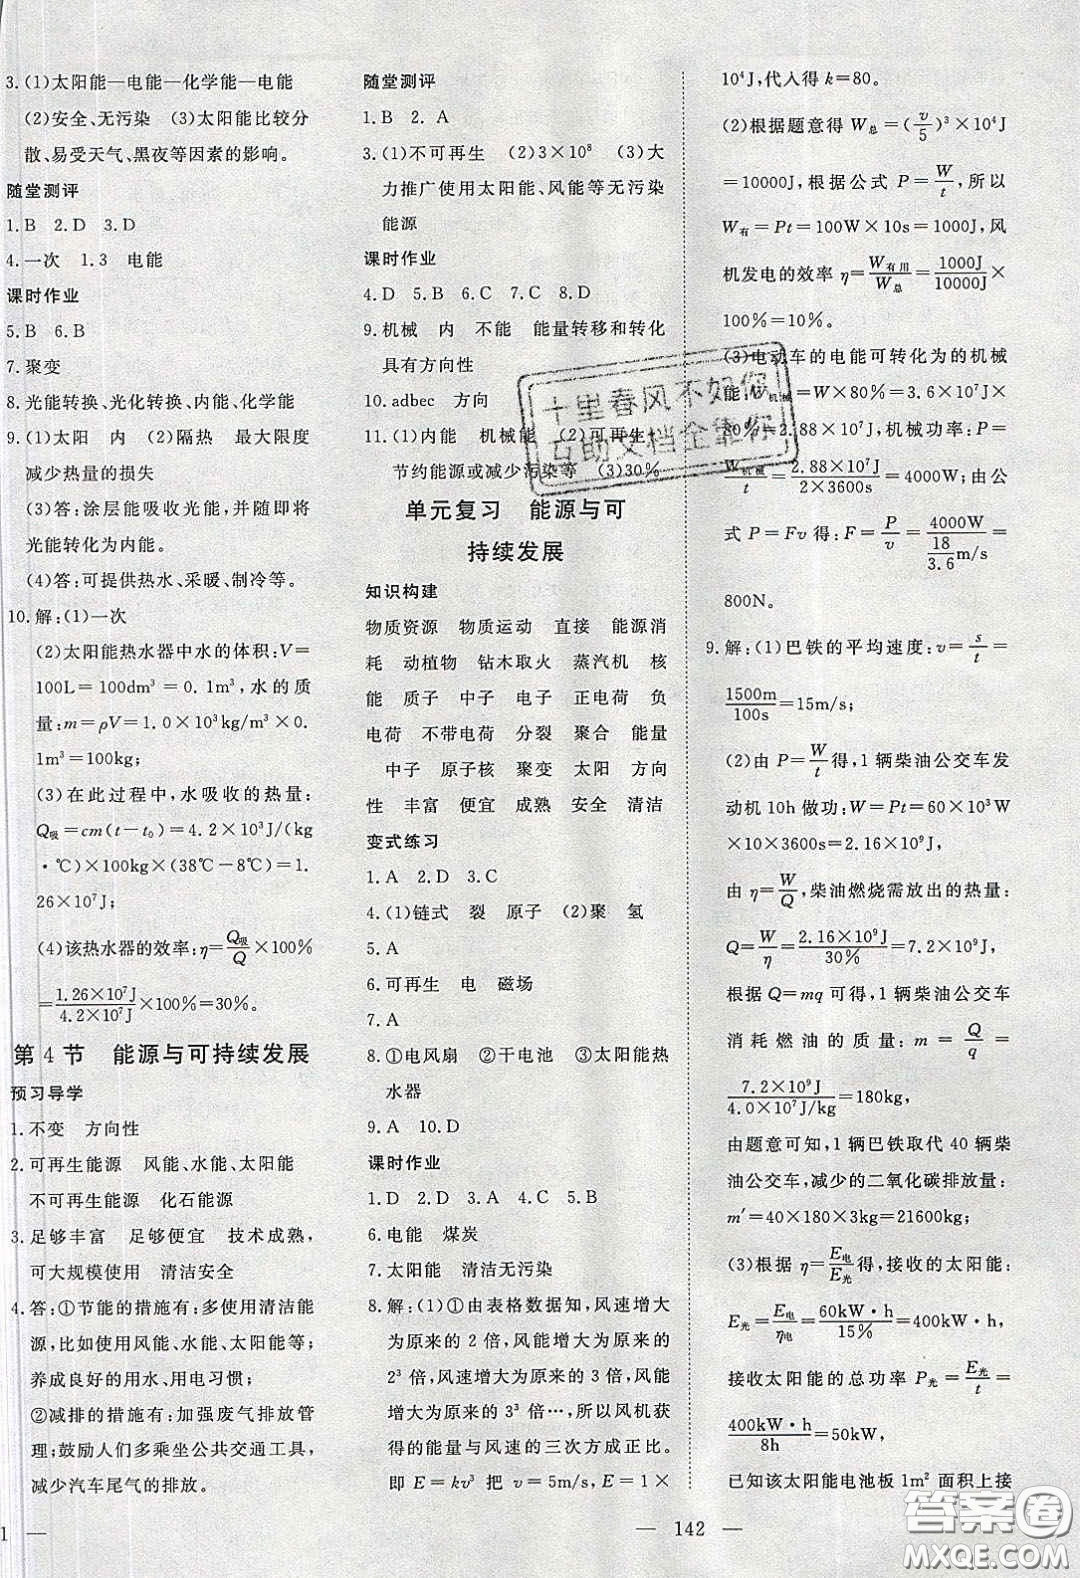 3.(1)太阳能—电能—化学能—电能
(2)安全、无污染 (3)太阳能比较分
散、易受天气、黑夜等因素的影响。
随堂测评
1.B 2.D 3.D
4.一次 1.3 电能
课时作业
5.B 6.B
7.聚变
8.光能转换、光化转换、内能、化学能
9.(1)太阳 内 (2)隔热 最大限度
减少热量的损失
(3)答:涂层能吸收光能,并随即将
光能转化为内能。
(4)答:可提供热水、采暖、制冷等。
10.解:(1)一次
(2)太阳能热水器中水的体积:V=
100L=100dm³=0.1m³,水的质
量:m=ρV=1.0×10³kg/m³×0.
1m³=100kg;
(3)在此过程中,水吸收的热量:
Q吸=cm(t-t₀)=4.2×10³J/(kg
·℃)×100kg×(38℃-8℃)=1.
26×10⁷J;
(4)该热水器的效率:η=Q吸/Q×100%
=1.26×10⁷J/4.2×10⁷J×100%=30%。
第4节 能源与可持续发展
预习导学
1.不变 方向性
2.可再生能源 风能、水能、太阳能
不可再生能源 化石能源
3.足够丰富 足够便宜 技术成熟,
可大规模使用 清洁安全
4.答:①节能的措施有:多使用清洁能
源,比如使用风能、水能、太阳能等;
养成良好的用水、用电习惯;
②减排的措施有:加强废气排放管
理;鼓励人们多乘坐公共交通工具,
减少汽车尾气的排放。
1 —
随堂测评
1.B 2.A
3.(1)不可再生 (2)3×10⁸ (3)大
力推广使用太阳能、风能等无污染
能源
课时作业
4.D 5.B 6.C 7.C 8.D
9.机械 内 不能 能量转移和转化
具有方向性
10.adbec 方向
11.(1)内能 机械能 (2)可再生
节约能源或减少污染等 (3)30%
单元复习 能源与可
持续发展
知识构建
物质资源 物质运动 直接 能源消
耗 动植物 钻木取火 蒸汽机 核
能 质子 中子 电子 正电荷 负
电荷 不带电荷 分裂 聚合 能量
中子 原子核 聚变 太阳 方向
性 丰富 便宜 成熟 安全 清洁
变式练习
1.A 2.D 3.C
4.(1)链式 裂 原子 (2)聚 氢
5.A
6.可再生 电 磁场
7.A
8.①电风扇 ②干电池 ③太阳能热
水器
9.A 10.D
课时作业
1.D 2.D 3.A 4.C 5.B
6.电能 煤炭
7.太阳能 清洁无污染
8.解:(1)①由表格数据知,风速增大
为原来的 2 倍,风能增大为原来的
2³ 倍,风速增大为原来的 3 倍,风
能增大为原来的 3³ 倍…,所以风机获
得的能量与风速的三次方成正比。
即 E=kv³ 把 v=5m/s,E=1×
— 142 —
10⁴J,代入得 k=80。
(2)根据题意得 W总=(v/5)³×10⁴J
=10000J,根据公式 P=W/t,所以
W有=Pt=100W×10s=1000J,风
机发电的效率 η=W有用/W总=1000J/10000J×
100%=10%。
(3)电动车的电能可转化为的机械
能:W机械=W×80%=3.6×10⁷J×
80%=2.88×10⁷J;机械功率:P=
W机械/t=2.88×10⁷J/2×3600s=4000W;由公
式 P=Fv 得:F=P/v=4000W/(18/3.6)m/s=
800N。
9.解:(1)巴铁的平均速度:v=s/t=
1500m/100s=15m/s;
(2)由 P=W/t得,1 辆柴油公交车发
动机 10h 做功:W=Pt=60×10³W
×10×3600s=2.16×10⁹J,
由 η=W/Q,柴油燃烧需放出的热量:
Q=W/η=2.16×10⁹J/30%=7.2×10⁹J,
根据 Q=mq 可得,1 辆柴油公交车
消耗燃油的质量:m=Q/q=
7.2×10⁹J/4.0×10⁷J/kg=180kg,
由题意可知,1 辆巴铁取代 40 辆柴
油公交车,减少的二氧化碳排放量:
m′=40×180×3kg=21600kg;
(3)根据 η=E电/E光得,接收的太阳能:
E光=E电/η电=60kW·h/15%=400kW·h,
接收太阳能的总功率 P光=E光/t=
400kW·h/8h=50kW,
已知该太阳能电池板 1m² 面积上接
十里春风不如你
互助文档全靠你
答案圈
MXQE.COM